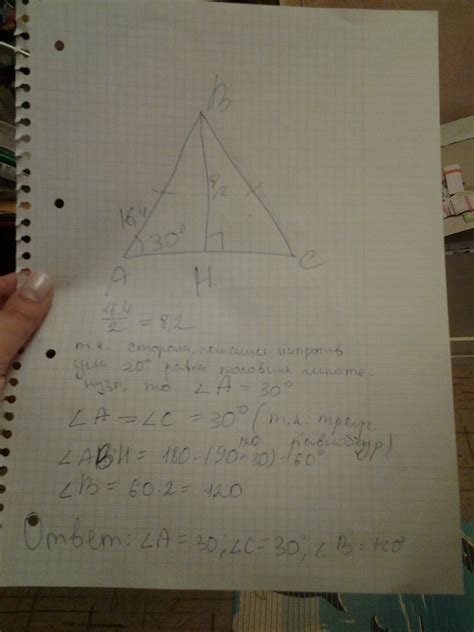 B
16,4
8,2
30°
A
H
C
16.4/2 = 8,2
т.к. сторона, лежащая напротив
угла 30° равна половине гипоте-
нузы, то ∠A = 30°
∠A = ∠C = 30° (т.к. треуг
по равнобедр)
∠ABH = 180-(90-30)=60°
∠B = 60·2 = 120
Ответ: ∠A = 30°; ∠C = 30°; ∠B = 120°